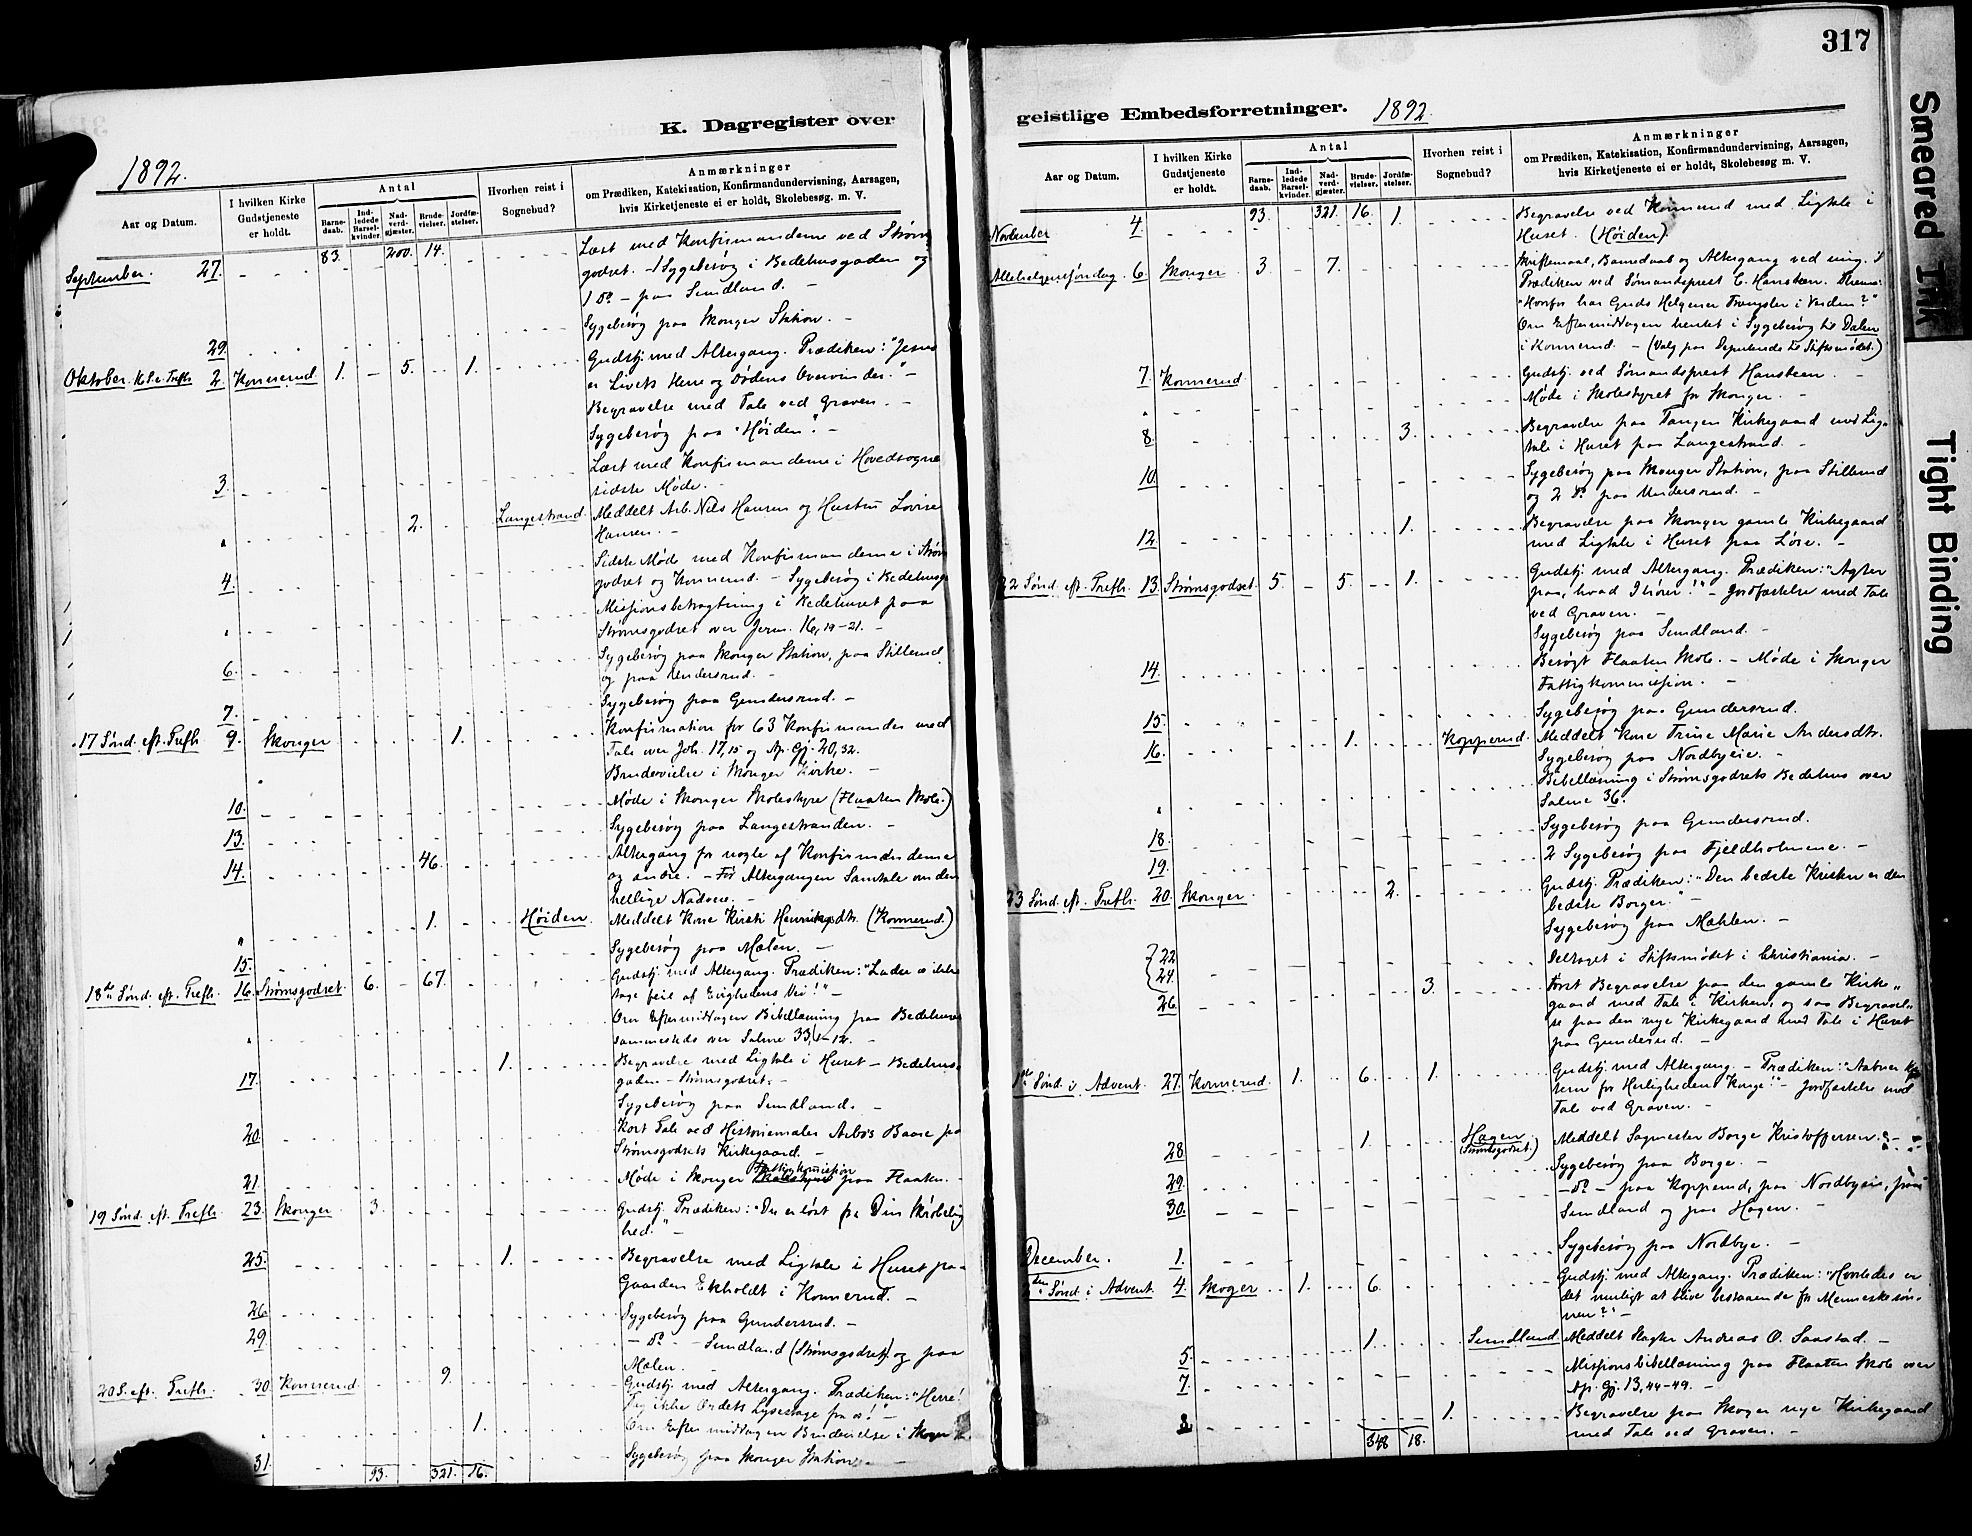 317
Smeared Ink
Tight Binding
K. Dagregister over
1892.
Aar og Datum.
I hvilken Kirke
Gudstjeneste
er holdt.
Antal
Barne-
daab.
Ind-
ledede
Barsel-
kvinder.
Nad-
verd-
gjæster.
Brude-
vielser.
Jordfæ-
stelser.
Hvorhen reist i
Sognebud?
Anmærkninger
om Prædiken, Katekisation, Konfirmandundervisning, Aarsagen,
hvis Kirketjeneste ei er holdt, Skolebesøg m. V.
83. 200. 14.
September. 27. Læst med Konfirmanderne ved Strøms-
godset. - 1 Sygebesøg i Bedehusgaden og
1 do - paa Sundland. -
29. Sygebesøg paa Skouger Station. -
Oktober. 2. Konnerud 1. - 5. 1. Gudstj. med Altergang. Prædiken: "Jesus
er Livets Herre og Dødens Overvinder." -
Begravelse med Tale ved Graven. -
Sygebesøg paa "Høiden". -
3. Læst med Konfirmanderne i Hovedsognet
sidste Møde. -
" 2. Langestrand. Meddelt Arb. Nils Hansen og Hustru Lovise
Hansen. -
4. Sidste Møde med Konfirmanderne i Strøms
godset og Konnerud. - Sygebesøg i Bedehusg.
" Missionsbetragtning i Bedehuset paa
Strømsgodset over Jerm. 16, 19-21. -
6. Sygebesøg paa Skouger Station, paa Stillerud
og paa Undersrud. -
7. Sygebesøg paa Gundersrud. -
17 Sønd. eft. Trefh 9. Skouger 1. Konfirmation for 63 Konfirmander med
Tale over Joh. 17, 15 og Ap. Gj. 20, 32.
" Brudevielse i Skouger Kirke. -
10. Møde i Skouger Skolestyre (Flaaten Skole.)
13. Sygebesøg paa Langestranden. -
14. 46. Altergang for nogle af Konfirmanderne
og andre. - Før Altergangen Samtale om den
hellige Nadvere. -
" 1. Høiden. Meddelt Kone Kirsti Henriksdtr. (Konnerud.)
15. Sygebesøg paa Mælen. -
18de Sønd. eft. Trefh. 16. Strømsgodset. 6. - 67. Gudstj. med Altergang. Prædiken: "Lader os ikke
tage feil af Evighedens Vei!" -
" Om Eftermiddagen Bibellæsning paa Bedehuset
sammesteds over Salme 33, 1-12. -
17. 1. Begravelse med Ligtale i Huset - Bedehus-
gaden - Strømsgodset. -
Sygebesøg paa Sundland. -
20. Kort Tale ved Historiemaler Arbos Baare paa
Strømsgodsets Kirkegaard. -
21. Møde i Skouger Fattigkommission paa Flaaten. -
19 Sønd. eft. Trefh. 23. Skouger 3. Gudstj. Prædiken: "Du er løst fra Din Skrøbelig
hed." -
25. 1. Begravelse med Ligtale i Huset paa
Gaarden Ekholdt i Konnerud. -
26. Sygebesøg paa Gundersrud. -
29 - do - Sundland (Strømsgodset) og paa
Mælen. -
20 S. eft. Trefh. 30. Konnerud. 9. Gudstj. med Altergang. Prædiken: "Herre!
Tag ikke Ordets Lysestage fra os!" -
" 1. Om Eftermiddagen Brudevielse i Skouger K.
31. Sygebesøg paa Skouger Station. -
93. 321. 16.
geistlige Embedsforretninger. 1892.
Aar og Datum.
I hvilken Kirke
Gudstjeneste
er holdt.
Antal
Barne-
daab.
Ind-
ledede
Barsel-
kvinder.
Nad-
verd-
gjæster.
Brude-
vielser.
Jordfæ-
stelser.
Hvorhen reist i
Sognebud?
Anmærkninger
om Prædiken, Katekisation, Konfirmandundervisning, Aarsagen,
hvis Kirketjeneste ei er holdt, Skolebesøg m. V.
93. 321. 16.
November 4. 1. Begravelse ved Konnerud med Ligtale i
Huset. (Høiden).
Allehelgenssøndag. 6. Skouger 3. - 7. Skriftemaal, Barnedaab og Altergang ved mig.
Prædiken ved Sømandsprest C. Hansteen. Thema:
"Hvorfor har Guds Helgener Trængsler i Verden?"
Om Eftermiddagen hentet i Sygebesøg til Dalen
i Konnerud. - (Valg paa Deputerede til Stiftsmødet.)
7. Konnerud. Gudstj. ved Sømandsprest Hansteen. -
" Møde i Skolestyret for Skouger. -
8. 3. Begravelse paa Tangen Kirkegaard med Lig-
tale i Huset paa Langestrand. -
10. Sygebesøg paa Skouger Station, paa Stillerud
og 2 do paa Undersrud. -
12. 1. Begravelse paa Skouger gamle Kirkegaard
med Ligtale i Huset paa Løse. -
22 Sønd. eft. Trefh. 13. Strømsgodset. 5. - 5. 1. Gudstj. med Altergang. Prædiken: "Agter
paa, hvad I hører!" - Jordfæstelse med Tale
ved Graven. -
Sygebesøg paa Sundland. -
14. Besøgt Flaaten Skole. - Møde i Skouger
Fattigkommission. -
15. Sygebesøg paa Gundersrud.
16. 1. Kopperud. Meddelt Kone Trine Marie Andersdtr.
Sygebesøg paa Nordbyeie. -
" Bibellæsning i Strømsgodsets Bedehus over
Salme 36.
18. Sygebesøg paa Gundersrud.
19. 2 Sygebesøg paa Fjeldholmene. -
23 Sønd. eft. Trefh. 20. Skouger 2. Gudstj. Prædiken: "Den bedste Kristen er den
bedste Borger." -
Sygebesøg paa Mælen. -
22
24. Deltaget i Stiftsmødet i Christiania. -
26. 3. Først Begravelse paa den gamle Kirke-
gaard med Tale i Kirken, og saa Begravel-
se paa den nye Kirkegaard med Tale i Huset
paa Gundersrud. -
1ste Sønd. i Advent. 27. Konnerud. 1. 6. 1. Gudstj. med Altergang. - Prædiken: "Aabner
for Herlighedens Konge!" - Jordfæstelse med
Tale ved Graven. -
28 1. Hagen (Strømsgodset) Meddelt Sagmester Borge Kristoffersen. -
29. Sygebesøg paa Borge. -
30. - do - paa Kopperud, paa Nordbyeie, paa
Sundland og paa Hagen. -
December. 1. Sygebesøg paa Nordbye. -
Sønd. i Advent 4. Skoger 1. 6. Gudstj. med Altergang. Prædiken: "Hvorledes er
det muligt at blive bestaaende for Menneskesøn-
nen?" -
5. 1. Sundland. Meddelt Slagter Andreas O. Saastad. -
7. Missionsbibellæsning paa Flaaten Skole over
Ap. Gj. 13, 44-49. -
8 1. Begravelse paa Skoger nye Kirkegaard
med Tale ved Graven. -
348 18.